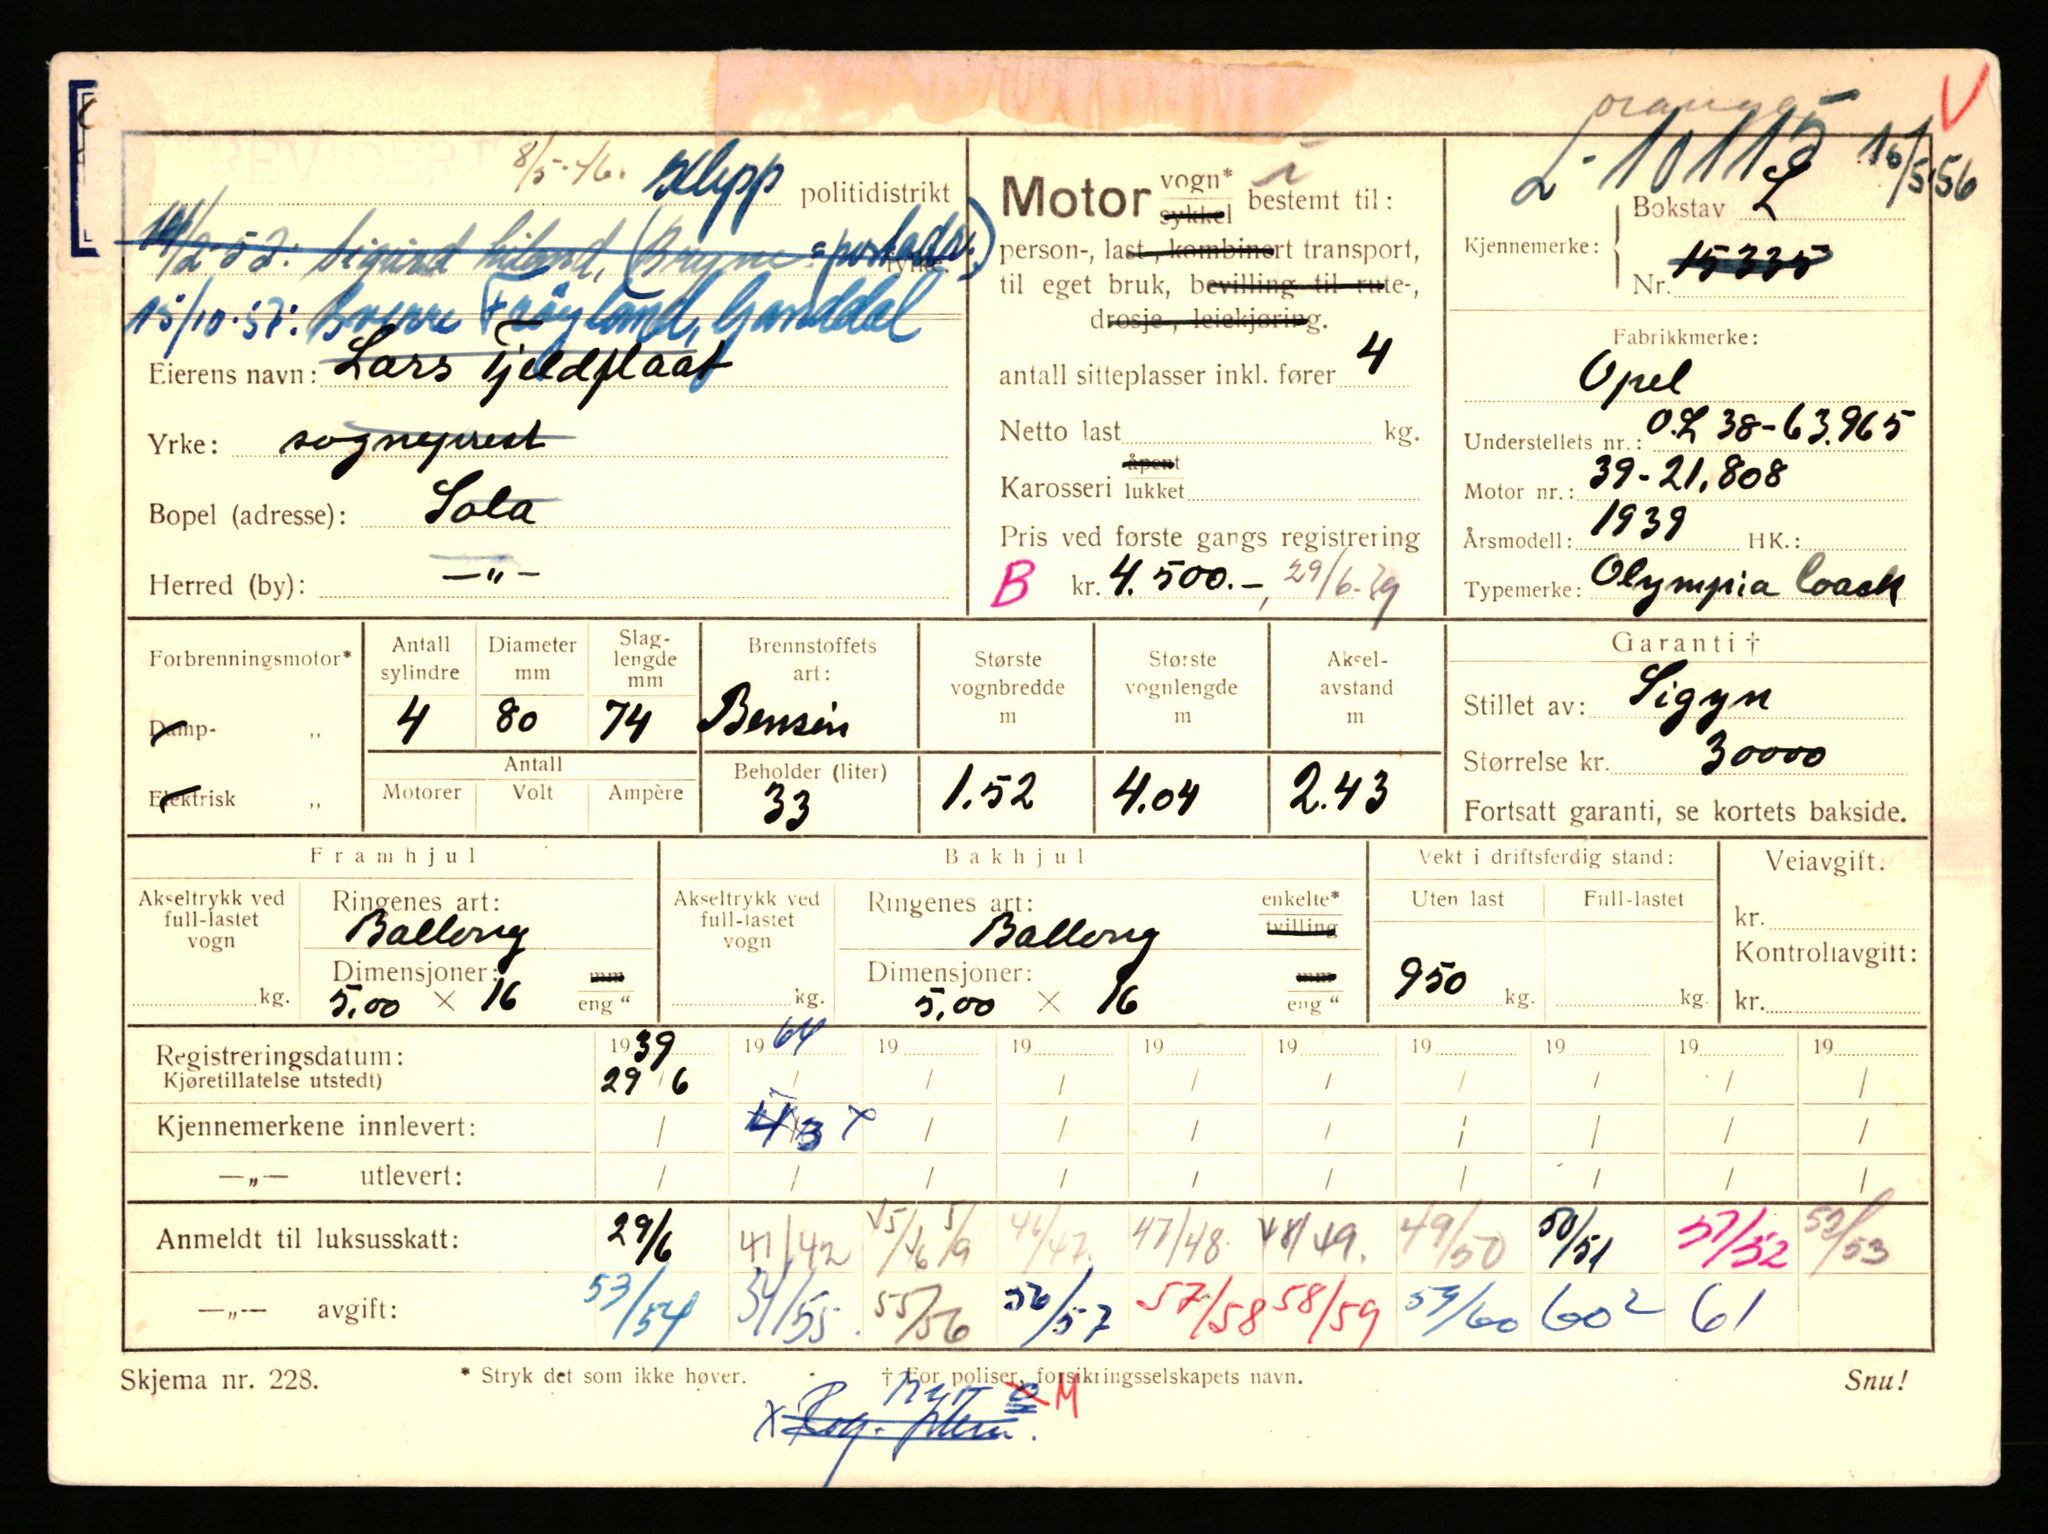 orange
L-10115 16/5 56
8/5-46. Klepp politidistrikt
14/2-52: Sigurd (Bryne = postadr.) fylke.
15/10-57: Sverre Frøyland, Ganddal
Eierens navn: Lars Tjeldflaat
Yrke: sogneprest
Bopel (adresse): Sola
Herred (by): —"—
Motor vogn* sykkel bestemt til:
person-, last-, kombinert transport,
til eget bruk, bevilling til rute-,
drosje-, leiekjøring.
antall sitteplasser inkl. fører 4
Netto last kg.
Karosseri åpent lukket
Pris ved første gangs registrering
B kr. 4.500.-, 29/6-39
Kjennemerke: Bokstav L
Nr. 15335
Fabrikkmerke:
Opel
Understellets nr.: O.L 38-63.965
Motor nr.: 39-21,808
Årsmodell: 1939 HK.:
Typemerke: Olympia Coach
Forbrenningsmotor*
Damp- „
Elektrisk „
Antall sylindre
4
Diameter mm
80
Slag-lengde mm
74
Antall
Motorer Volt Ampère
Brennstoffets art:
Bensin
Beholder (liter)
33
Største vognbredde m
1.52
Største vognlengde m
4.04
Aksel-avstand m
2.43
Garanti †
Stillet av: Sigyn
Størrelse kr. 30000
Fortsatt garanti, se kortets bakside.
Framhjul
Akseltrykk ved full-lastet vogn
kg.
Ringenes art:
Ballong
Dimensjoner: mm
5,00 × 16 eng "
Bakhjul
Akseltrykk ved full-lastet vogn
kg.
Ringenes art: enkelte*
Ballong tvilling
Dimensjoner: mm
5,00 × 16 eng "
Vekt i driftsferdig stand:
Uten last Full-lastet
950 kg. kg.
Veiavgift.
kr.
Kontrollavgift:
kr.
Registreringsdatum: 1939 1964 19 19 19 19 19 19 19 19
Kjøretillatelse utstedt) 29/6 / / / / / / / / /
Kjennemerkene innlevert: / 4/3 x / / / / / / / /
—„— utlevert: / / / / / / / / / /
Anmeldt til luksusskatt: 29/6 41/42 45/46 5/9 46/47. 47/48. 48/49. 49/50 50/51 51/52 52/53
—„— avgift: 53/54 54/55. 55/56 56/57 57/58 58/59 59/60 60² 61
Skjema nr. 228. * Stryk det som ikke høver. † For poliser, forsikringsselskapets navn. Snu!
M
x